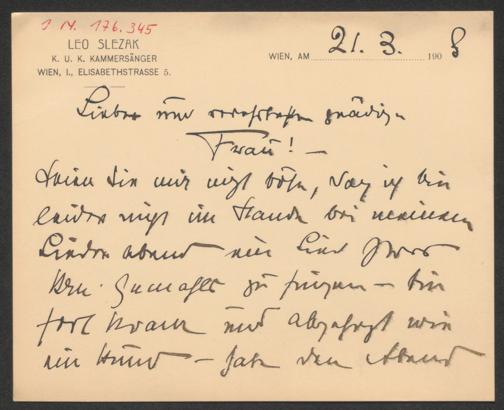 I.N. 176.345
LEO SLEZAK
K. U. K. KAMMERSÄNGER
WIEN, I., ELISABETHSTRASSE 5.
WIEN, AM 21. 3. 190 8
Liebe und verehrteste gnädige
Frau! –
Seien Sie mir nicht böse, daß ich bin
leider nicht im Stande bei meinem
Liederabend ein Lied Ihres
Hrn. Gemahls zu singen – bin
fort krank und abgehetzt wie
ein Hund – habe den Abend